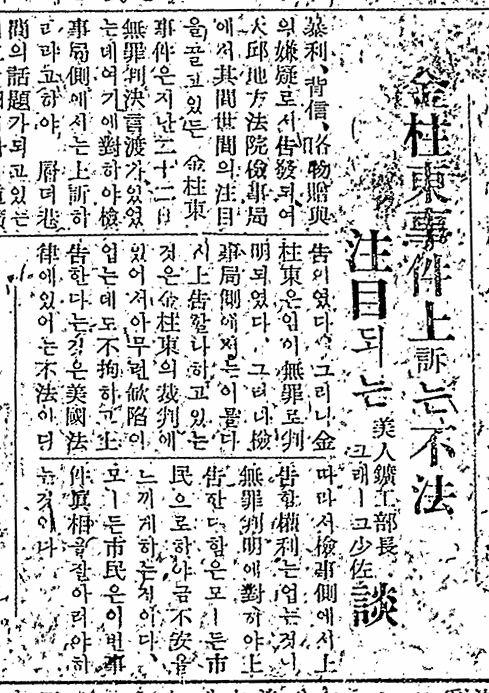 金桂東事件上訴는不法
注目되는
美人鑛工部長
그래ー그少佐
談
暴利、背信、賂物贈與
의嫌疑로서告發되여
大邱地方法院檢事局
에서其間世間의注目
을끌고있든 金桂東
事件은지난二十二日
無罪判決言渡가있었
는데여기에對하야檢
事局側에서는上訴하
리라고하야 層더巷
間의話題가되고있는
告이였다 그러나金
桂東은임이無罪로判
明되였다 그러나檢
事局側에서는이를다
시上告할나하고있는
것은金桂東의裁判에
있어서아무런缺陷이
업는데도不拘하고上
告한다는것은美國法
律에있어는不法이며
따라서檢事側에서上
告할權利는업는것이
無罪判明에對하야上
告한다함은모ー든市
民으로하야금不安을
느끼게하는것이다
모ー든市民은이번事
件眞相을잘아러야하
는것이다